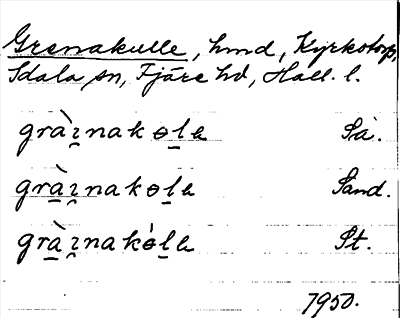 Grenakulle, hmd, Kyrkotorp,
Idala sn, Fjäre hd, Hall. l.
grài̯nakɵlɐ Så.
grài̯nakɵlɐ Sand.
grài̯nakɵ́lɐ St.
1950.